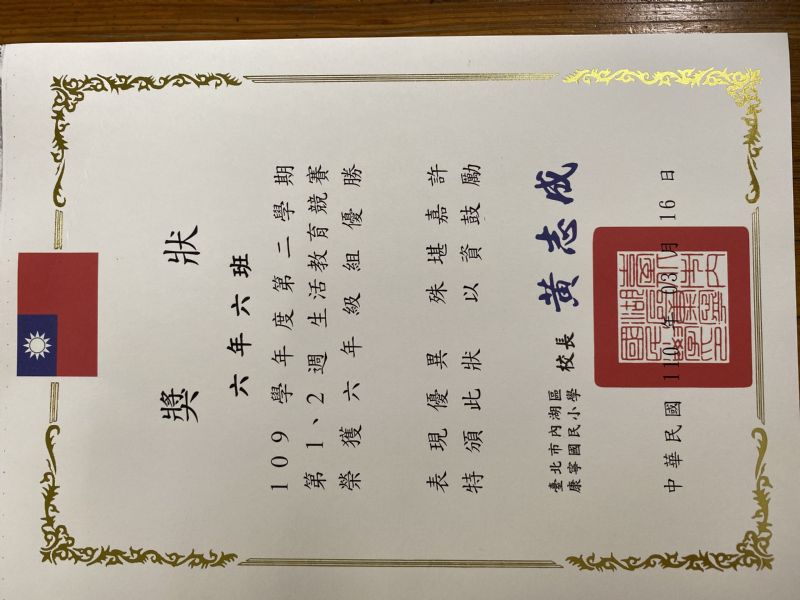 獎狀
六年六班
109 學年度第二學期
第1、2週生活教育競賽
榮獲六年級組優勝
表現優異 殊堪嘉許
特頒此狀 以資鼓勵
臺北市內湖區
康寧國民小學
校長 黃志成
中華民國 110 年 03 月 16 日